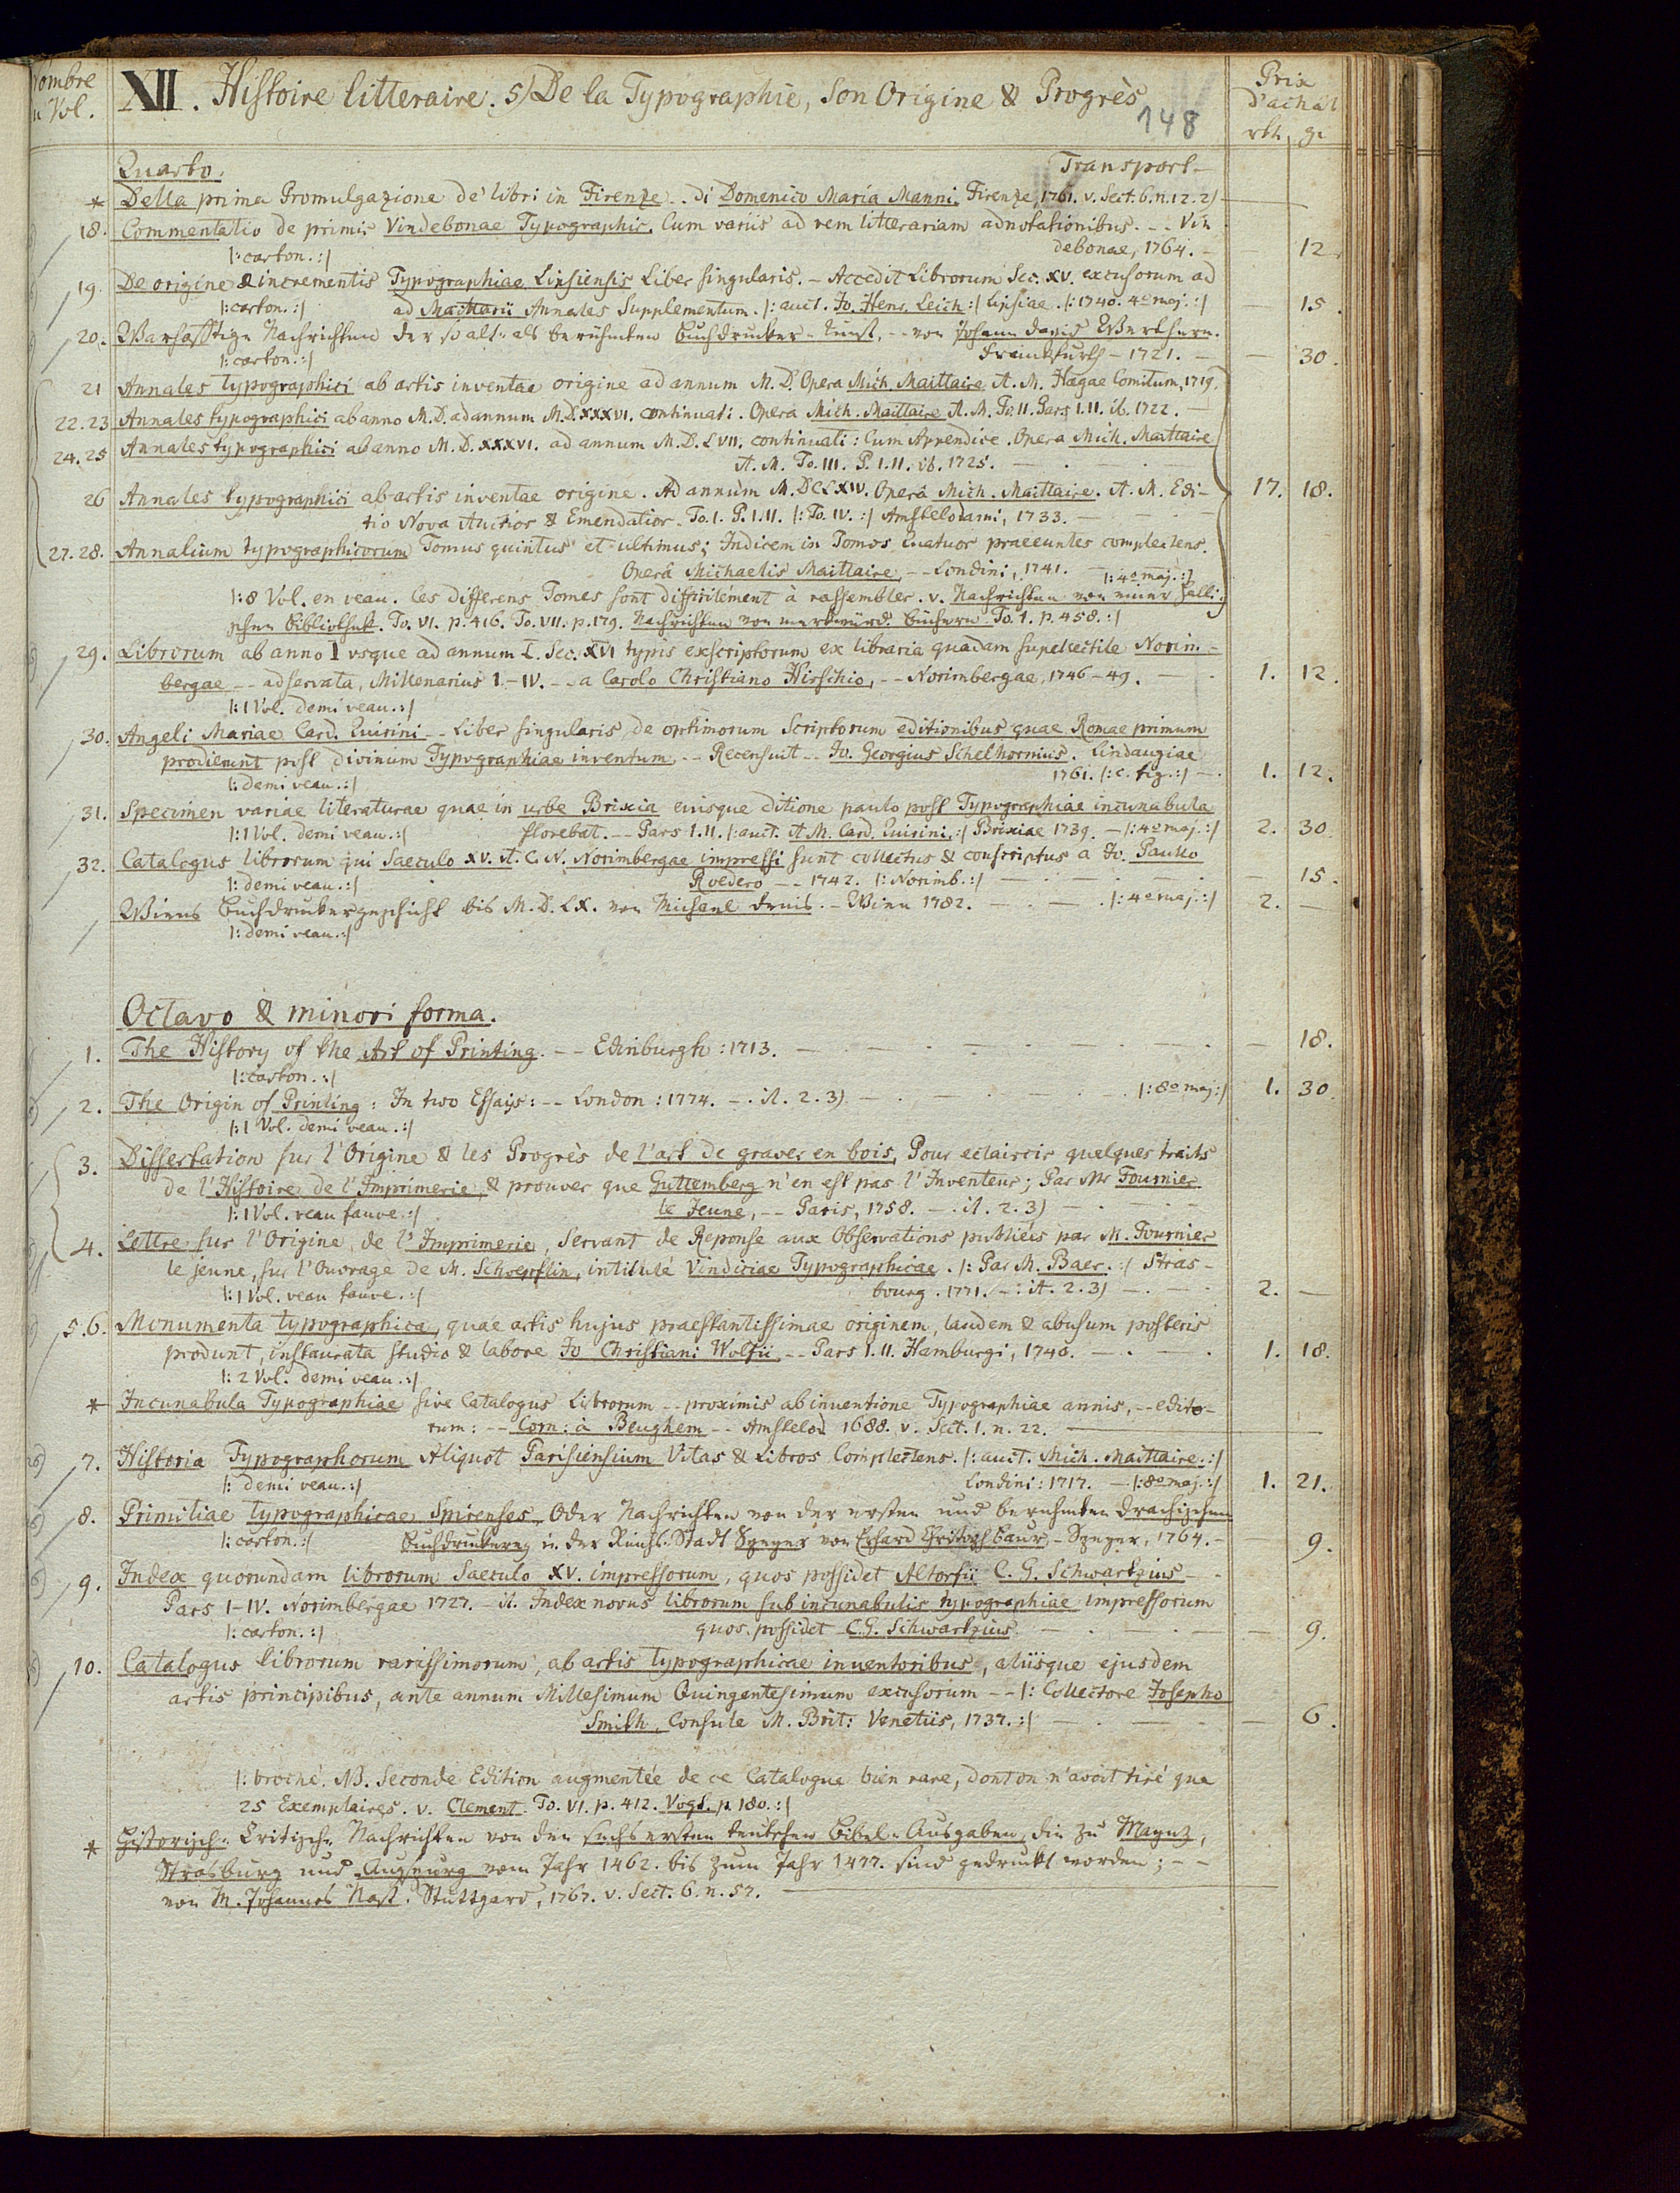 Nombre
u Vol.
XII. Histoire litteraire. 5) De la Typographie, Son Origine & Progrès
148
Prix
d'achat
rth. gr
Quarto. Transport —
* Della prima Promulgazione de' libri in Firenze .. di Domenico Maria Manni. Firenze 1761. v. Sect. 6. n. 12. 2)
18. Commentatio de primis Vindebonae Typographis. Cum variis ad rem litterariam adnotationibus. -- Vin
|: carton. :| debonae, 1764. — 12.
19. De origine & incrementis Typographiae Lipsiensis Liber singularis. — Accedit Librorum Sec. XV. excusorum ad
|: carton. :| ad Maittarii Annales Supplementum. |: auct. Jo. Henr. Leich :| Lipsiae. |: 1740. 4o maj. :| — 15.
20. Warhafftige Nachrichten der so alt- als berühmten Buchdrucker-Kunst, -- von Johann David Werthern.
|: carton. :| Franckfurth — 1721. — 30.
21 Annales typographici ab artis inventae origine ad annum M.D. Opera Mich. Maittaire A. M. Hagae Comitum, 1719.
22. 23 Annales typographici ab anno M.D. ad annum M.D.XXXVI. continuati. Opera Mich. Maittaire A. M. To. II. Pars I. II. ib. 1722. —
24. 25 Annales typographici ab anno M.D.XXXVI. ad annum M.D.LVII; continuati: Cum Appendice. Opera Mich. Maittaire
A. M. To. III. P. I. II. ib. 1725. —
26 Annales typographici ab artis inventae origine. Ad annum M.DCLXIV. Operâ Mich. Maittaire. A. M. Edi- 17. 18.
tio Nova Auctior & Emendatior. To. I. P. I. II. |: To. IV. :| Amstelodami, 1733. —
27. 28. Annalium typographicorum Tomus quintus et ultimus; Indicem in Tomos Quatuor praeeuntes complectens.
Operâ Michaelis Maittaire -- Londini, 1741. — |: 4o maj. :|
|: 8 Vol. en veau. les differens Tomes sont difficilement à rassembler. v. Nachrichten von einer halli-
schen Bibliothek. To. VI. p. 416. To. VII. p. 179. Nachrichten von merkwürd. Büchern To. 1. p. 458. :|
29. Librorum ab anno I usque ad annum L. Sec. XVI typis exscriptorum ex libraria quadam supellectile Norin-
bergae -- adservata, Millenarius I—IV. -- a Carolo Christiano Hirschio, -- Norimbergae, 1746—49. — 1. 12.
|: 1 Vol. demi veau. :|
30. Angeli Mariae Card. Quirini -- Liber singularis de optimorum Scriptorum editionibus quae Romae primum
prodierunt post divinum Typographiae inventum, -- Recensuit -- Jo. Georgius Schelhornius. Lindaugiae
|: demi veau. :| 1761. |: c. fig. :| — 1. 12.
31. Specimen variae literaturae quae in urbe Brixia eiusque ditione paulo post Typographiae incunabula
|: 1 Vol. demi veau. :| florebat. -- Pars I. II. |: auct. A. M. Card. Quirini. :| Brixiae 1739. — |: 4o maj. :| 2. 30
32. Catalogus librorum qui Saeculo XV. A. C. N. Norimbergae impressi sunt collectus & conscriptus a Jo. Paullo
|: demi veau. :| Roedero -- 1742. |: Norimb. :| — 15.
Wiens Buchdruckergeschicht bis M.D.LX. von Michael Denis. — Wien 1782. — |: 4o maj. :| 2. —
|: demi veau. :|
Octavo & minori forma.
1. The History of the Art of Printing. -- Edinburgh: 1713. — 18.
|: carton. :|
2. The Origin of Printing: In two Essays: -- London: 1774. — . it. 2. 3) — |: 8o maj :| 1. 30.
|: 1 Vol. demi veau. :|
3. Dissertation sur l'Origine & les Progrès de l'art de graver en bois, Pour eclaircir quelques traits
de l'Histoire de l'Imprimerie, & prouver que Guttemberg n'en est pas l'Inventeur; Par Mr Fournier
|: 1 Vol. veau fauve. :| le Jeune, -- Paris, 1758. — . it. 2. 3) —
4. Lettre sur l'Origine de l'Imprimerie, Servant de Reponse aux Observations publiées par M. Fournier
le jeune, sur l'Ouvrage de M. Schoepflin, intitulé Vindiciae Typographicae. |: Par M. Baer. :| Stras-
|: 1 Vol. veau fauve. :| bourg. 1771. — : it. 2. 3) — 2. —
5. 6. Monumenta typographica, quae artis hujus praestantissimae originem, laudem & abusum posteris
produnt, instaurata studio & labore Jo Christiani Wolfii, -- Pars I. II. Hamburgi, 1740. — 1. 18.
|: 2 Vol. demi veau. :|
* Incunabula Typographiae sive Catalogus Librorum -- proximis ab inventione Typographiae annis, -- edito-
rum: -- Corn: à Beughem -- Amstelod 1688. v. Sect. 1. n. 22. —
7. Historia Typographorum Aliquot Parisiensium Vitas & Libros Complectens. |: auct. Mich. Maittaire. :|
|: demi veau. :| Londini: 1717. — |: 8o maj. :| 1. 21.
8. Primitiae typographicae Spirenses, Oder Nachrichten von der ersten und berühmten Drachischen
|: carton. :| Buchdruckerey in der Reichs-Stadt Speyer von Erhard Christoph Baur. — Speyer, 1764. — 9.
9. Index quorundam librorum Saeculo XV. impressorum, quos possidet Altorfii C. G. Schwartzius —
Pars I—IV. Norimbergae 1727. — it. Index novus librorum sub incunabulis typographiae impressorum
|: carton. :| quos possidet C. G. Schwartzius. — 9.
10. Catalogus librorum rarissimorum, ab artis typographicae inventoribus, aliisque ejusdem
artis principibus, ante annum Millesimum Quingentesimum excusorum -- |: Collectore Josepho
Smith, Consule M. Brit: Venetiis, 1737. :| — 6.
|: broché. NB. Seconde Edition augmentée de ce Catalogue bien rare, dont on n'avoit tiré que
25 Exemplaires. v. Clement. To. VI. p. 412. Vogt. p. 180. :|
* Historisch-Critische Nachrichten von den sechs ersten teutschen Bibel-Ausgaben, die zu Maynz,
Strasburg und Augspurg vom Jahr 1462. bis zum Jahr 1477. sind gedruckt worden; --
von M. Johannes Nast. Stuttgard, 1767. v. Sect. 6. n. 57. —